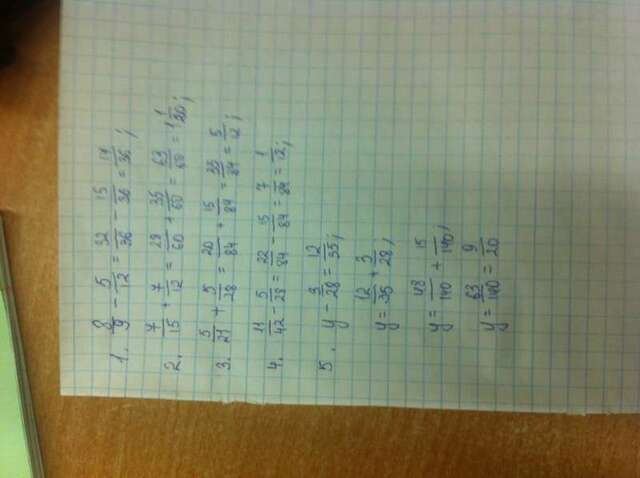 1. 8/9 - 5/12 = 32/36 - 15/36 = 17/36;
2. 7/15 + 7/12 = 28/60 + 35/60 = 63/60 = 1 1/20;
3. 5/21 + 5/28 = 20/84 + 15/84 = 35/84 = 5/12;
4. 11/42 - 5/28 = 22/84 - 15/84 = 7/84 = 1/12;
5. y - 3/28 = 12/35;
y = 12/35 + 3/28;
y = 48/140 + 15/140;
y = 63/140 = 9/20